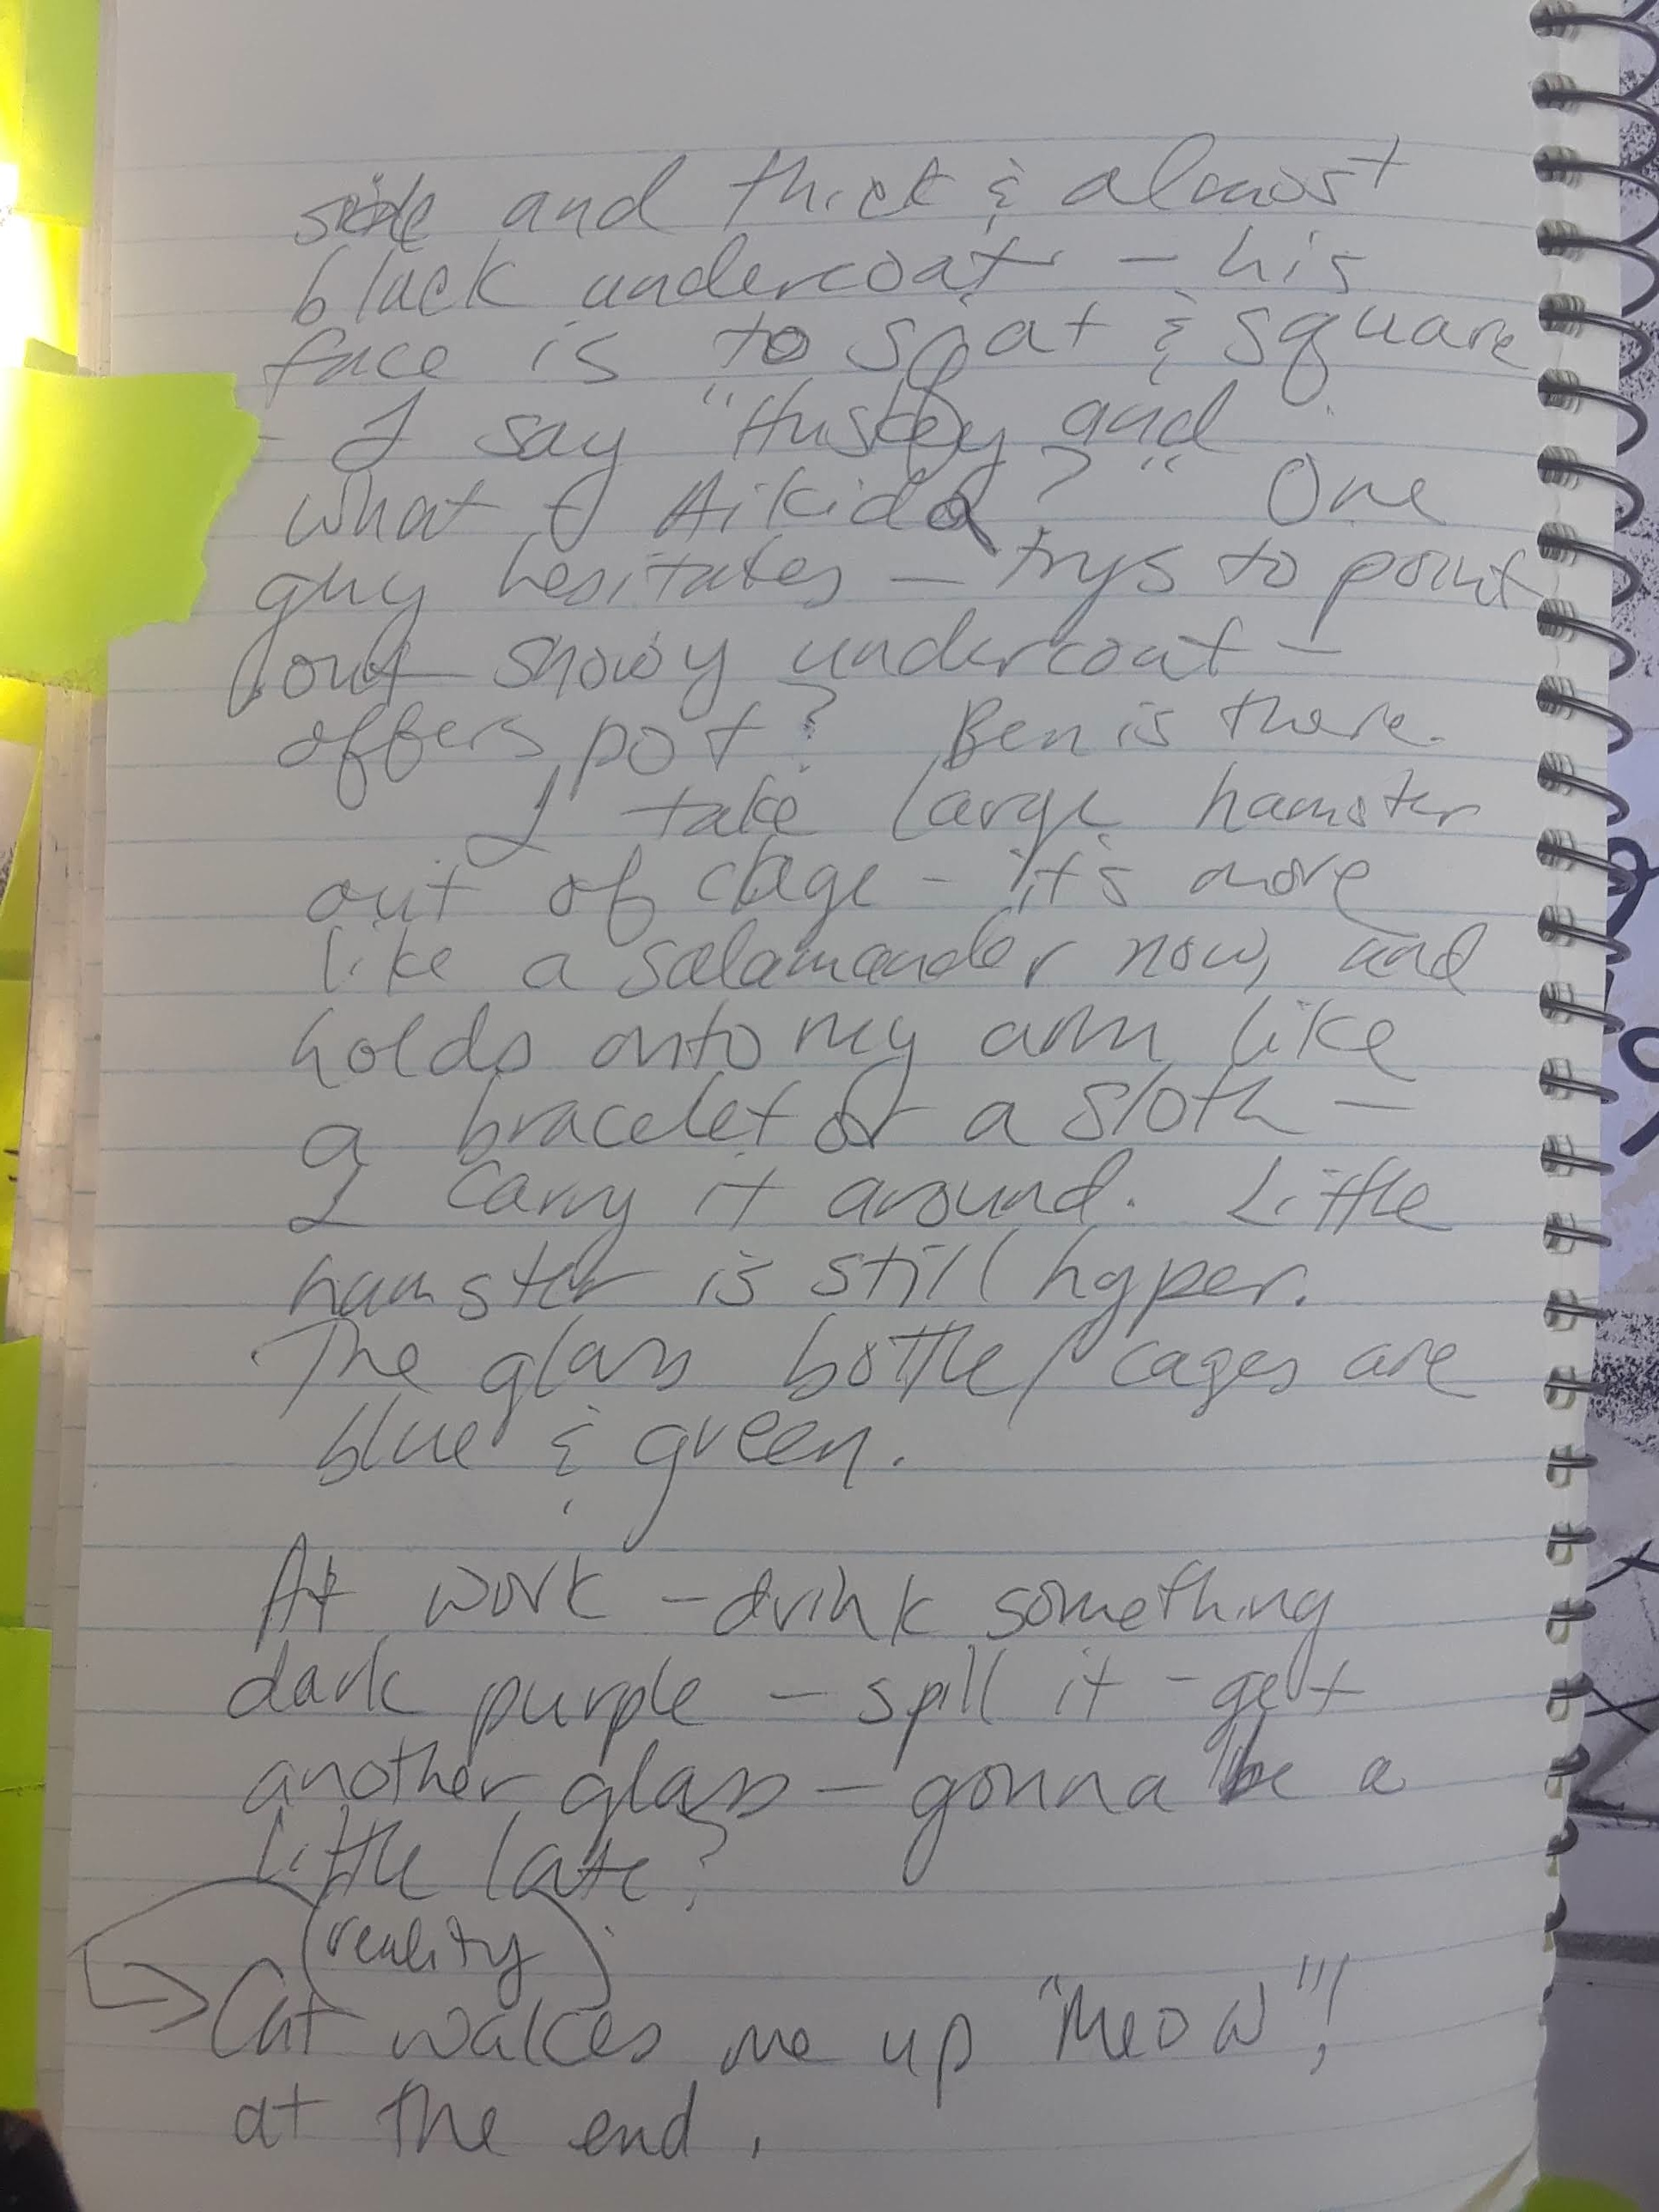 side and thick & almost
black undercoat - his
face is to sqat & square
- I say "Huskey and
what & Aikida?" One
guy hesitates - trys to point
out snowy undercoat -
offers pot? Ben is there.
I take large hamster
out of cage - it's more
like a salamander now, and
holds onto my arm like
a bracelet or a sloth -
I carry it around. Little
hamster is still hyper.
The glass bottle/cages are
blue & green.
At work - drink something
dark purple - spill it - get
another glass - gonna be a
little late?
reality
Cat wakes me up "MEOW"!!!
at the end.